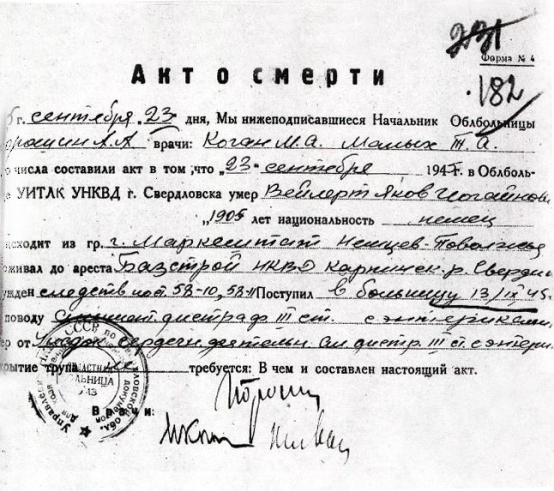 231
Форма № 4
182
Акт о смерти
5 г. сентября 23 дня, Мы нижеподписавшиеся Начальник Облбольницы
А.А врачи: Коган М.А. Малых Т.А.
о числа составили акт в том, что "23" сентября 1945 г. в Облболь-
УИТЛК УНКВД г. Свердловска умер Вейлерт Яков
1905 лет национальность немец
сходит из гр. г. Марксштат Немцев-Поволжья
оживал до ареста Базстрой НКВД Карпинск. р. Свердл
ужден следств по ст 58-10, 58-11 Поступил в больницу 13/IX 45
поводу дистроф III ст. с энтероколитом
ер от: Упадок сердечн деятельн. Ал дистр. III ст. с энтер
крытие трупа не требуется: В чем и составлен настоящий акт.
СССР
БОЛЬНИЦА
Врачи: